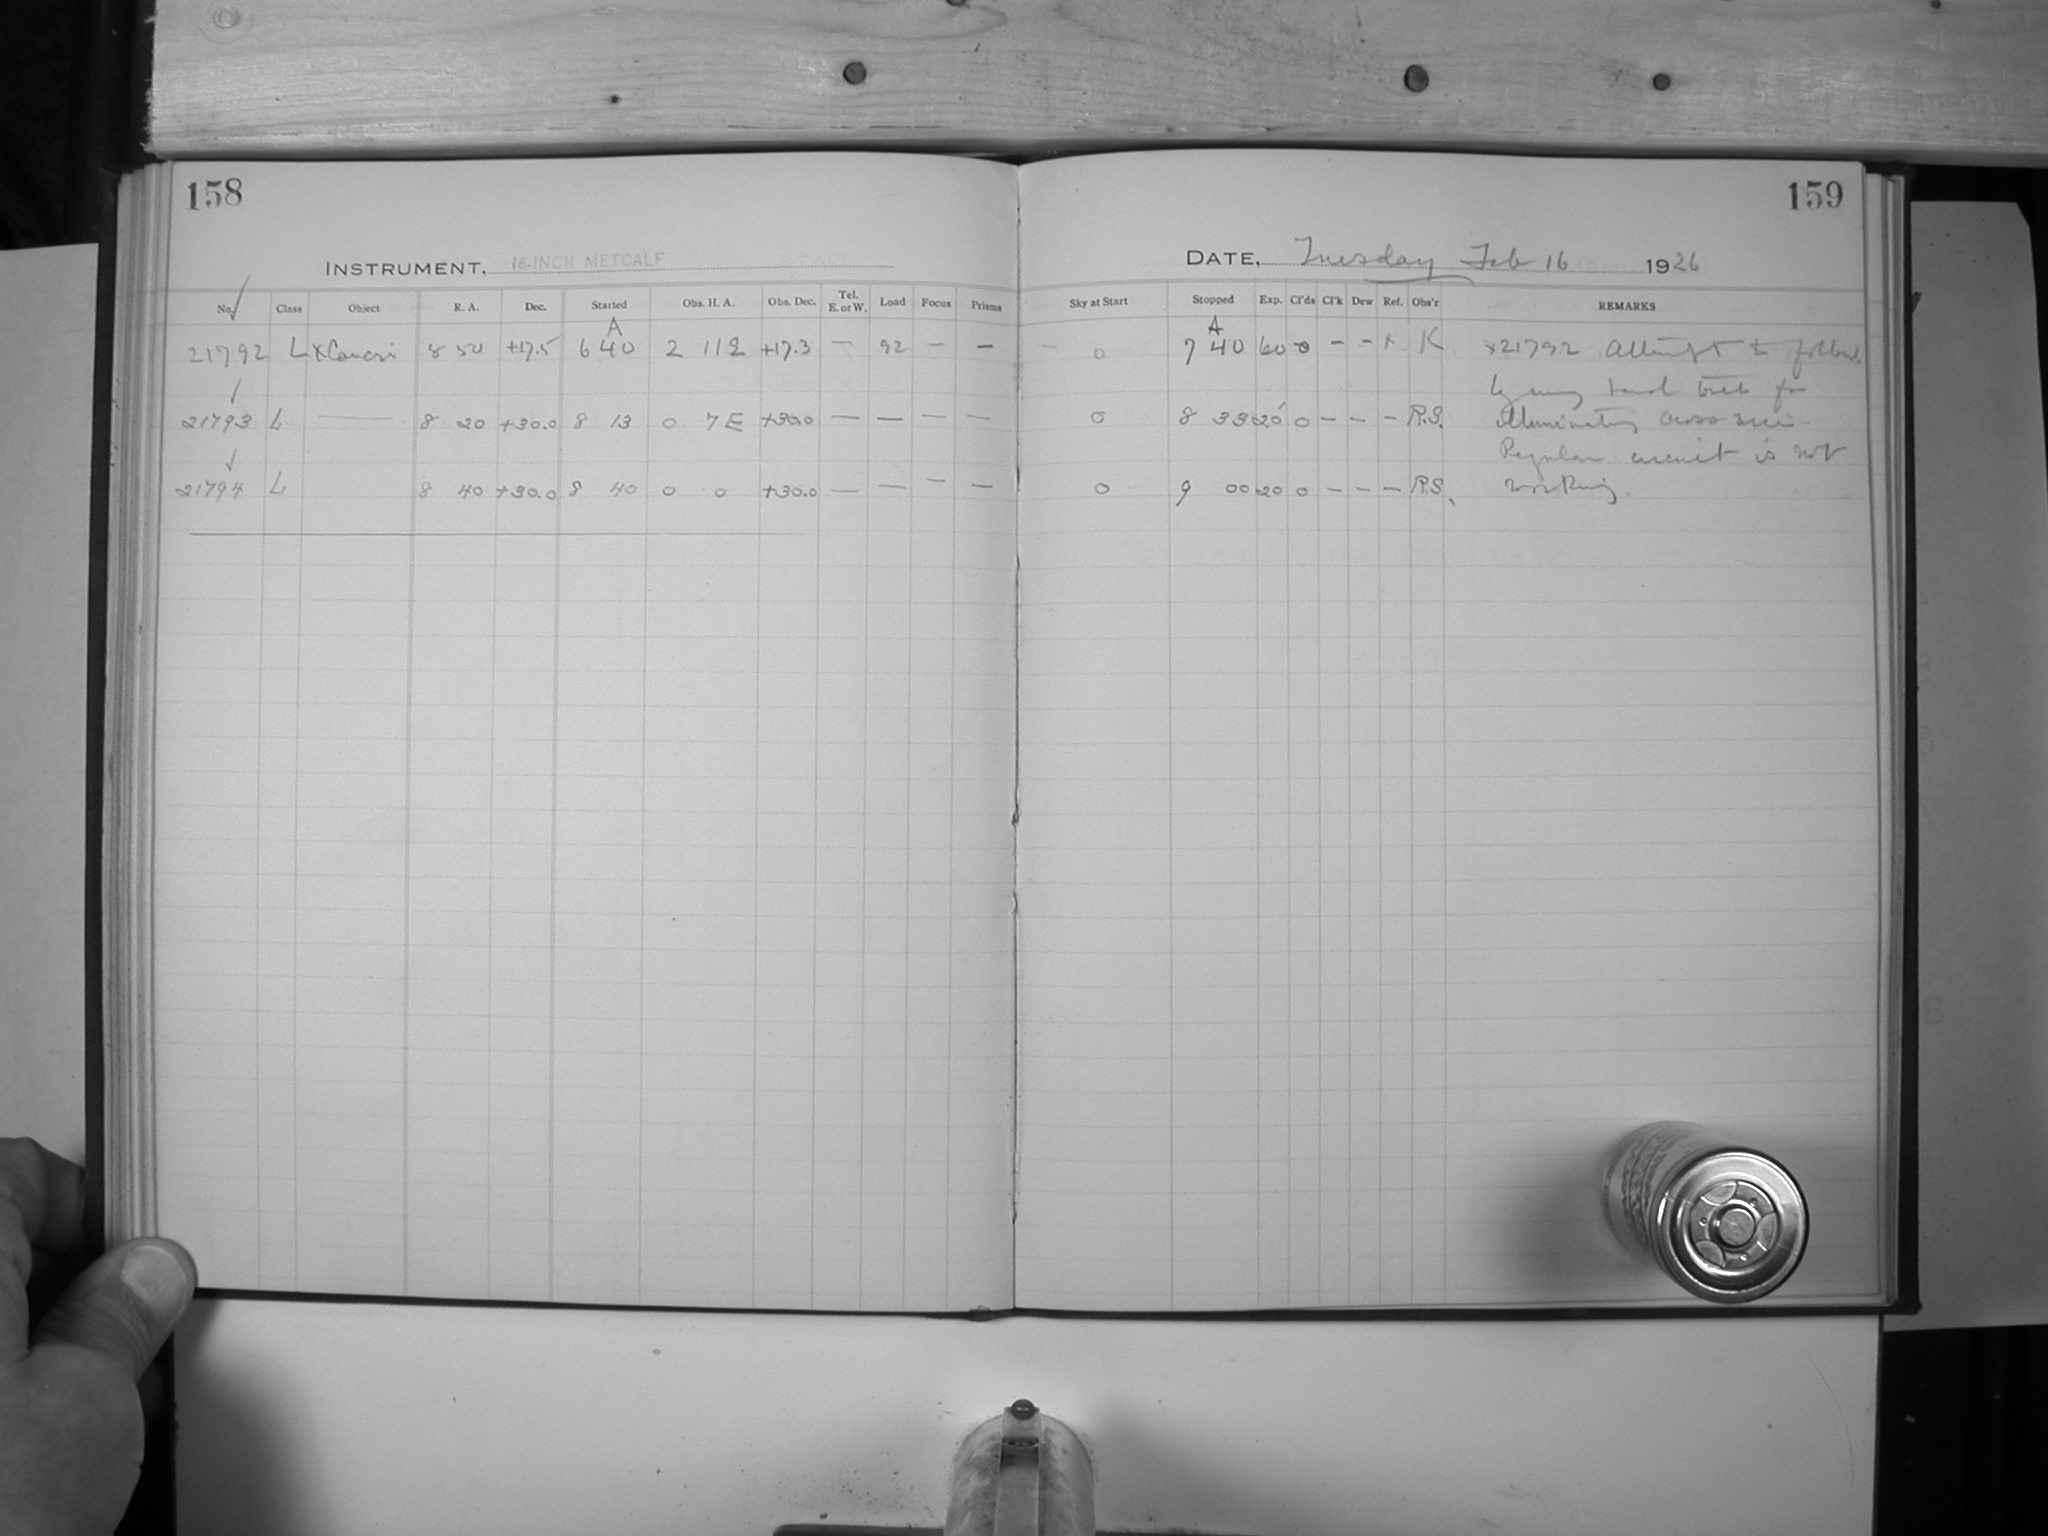 158
159
INSTRUMENT, 16-INCH METCALF
DATE, Tuesday Feb 16 1926
No. Class Object R. A. Dec. Started Obs. H. A. Obs. Dec. Tel. E. or W. Load Focus Prisms Sky at Start Stopped Exp. Cl'ds Cl'k Dew Ref. Obs'r REMARKS
A A
21792 L X Cancri 8 50 +17.5 6 40 2 11 E +17.3 — 92 — — 0 7 40 60 0 — — x K x21792 Attempt to follow
by using hand for
21793 L — 8 20 +30.0 8 13 0 7 E +30.0 — — — — 0 8 33 20 0 — — — R.S. illuminating cross
Regular circuit is not
21794 L 8 40 +30.0 8 40 0 0 +30.0 — — — — 0 9 00 20 0 — — — R.S. working.